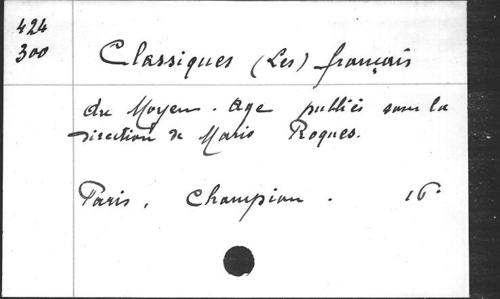 424
300
Classiques (Les) français
du Moyen. Age publiés sous la
direction de Mario Roques.
Paris, Champion. 16°